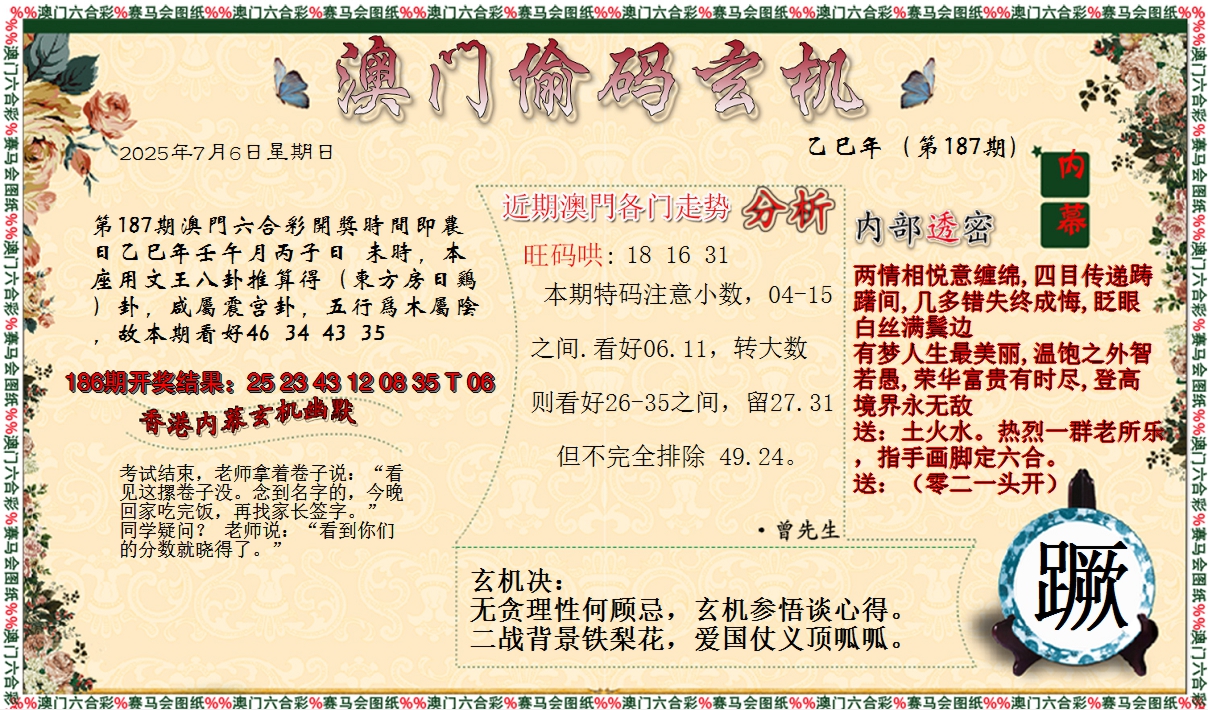 %%澳门六合彩%赛马会图纸%%澳门六合彩%赛马会图纸%%澳门六合彩%赛马会图纸%%澳门六合彩%赛马会图纸%%澳门六合彩%赛马会图纸%%澳门六合彩%赛马会图纸%%
澳门偷码玄机
2025年7月6日星期日
乙巳年（第187期）
内
幕
第187期澳門六合彩開獎時間即農
日乙巳年壬午月丙子日 未時，本
座用文王八卦推算得（東方房日鷄
）卦，咸屬震宫卦，五行爲木屬陰
，故本期看好46 34 43 35
186期开奖结果：25 23 43 12 08 35 T 06
香港内幕玄机幽默
考试结束，老师拿着卷子说：“看
见这摞卷子没。念到名字的，今晚
回家吃完饭，再找家长签字。”
同学疑问？ 老师说：“看到你们
的分数就晓得了。”
近期澳門各门走势 分析
旺码哄: 18 16 31
本期特码注意小数，04-15
之间.看好06.11，转大数
则看好26-35之间，留27.31
但不完全排除 49.24。
·曾先生
内部透密
两情相悦意缠绵,四目传递踌
躇间,几多错失终成悔,眨眼
白丝满鬓边
有梦人生最美丽,温饱之外智
若愚,荣华富贵有时尽,登高
境界永无敌
送：土火水。热烈一群老所乐
，指手画脚定六合。
送：（零二一头开）
玄机决：
无贪理性何顾忌，玄机参悟谈心得。
二战背景铁梨花，爱国仗义顶呱呱。
蹶
%%澳门六合彩%赛马会图纸%%澳门六合彩%赛马会图纸%%澳门六合彩%赛马会图纸%%澳门六合彩%赛马会图纸%%澳门六合彩%赛马会图纸%%澳门六合彩%赛马会图纸%%